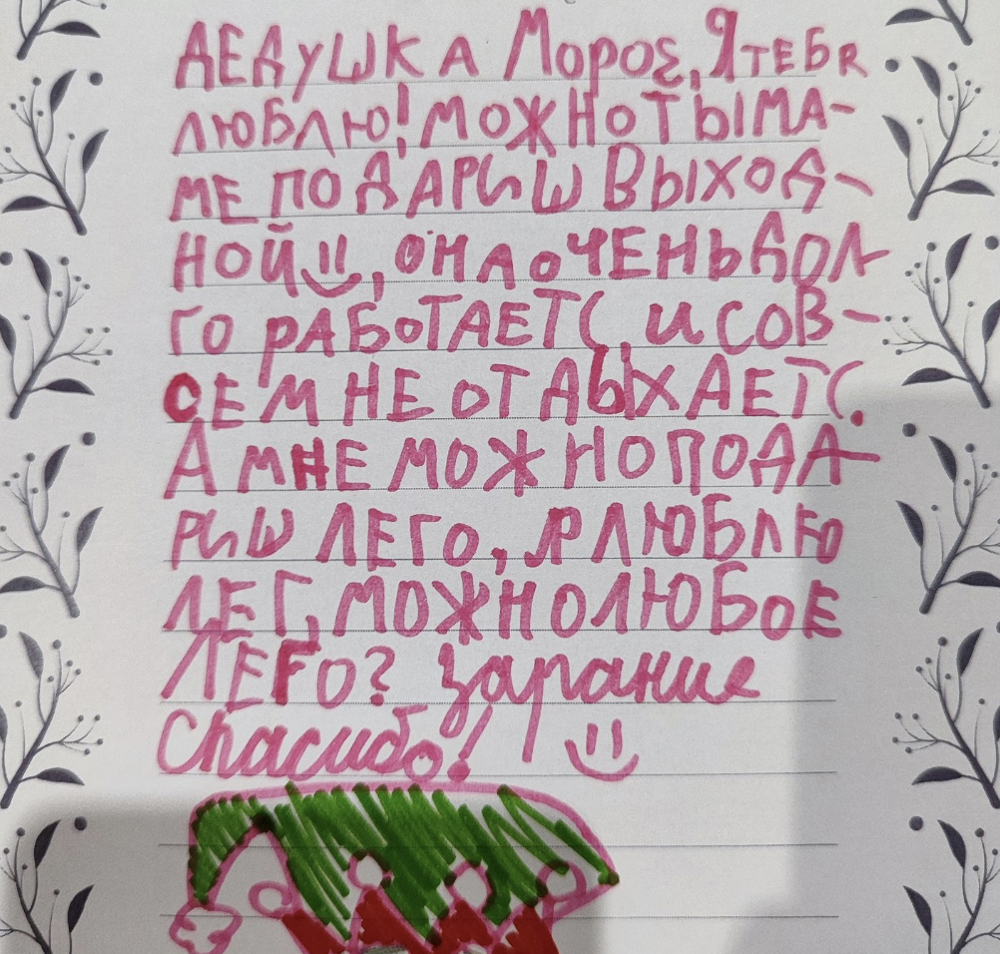 ДЕДУШКА Мороз, Я ТЕБЯ
ЛЮБЛЮ! МОЖНО ТЫ МА-
МЕ ПОДАРИШ ВЫХОД-
НОЙ, ОНА ОЧЕНЬ ДОЛ-
ГО РАБОТАЕТ(, и СОВ-
СЕМ НЕ ОТДЫХАЕТ(.
А МНЕ МОЖНО ПОДА-
РИШ ЛЕГО, Я ЛЮБЛЮ
ЛЕГ, МОЖНО ЛЮБОЕ
ЛЕГО? зарание
Спасибо!